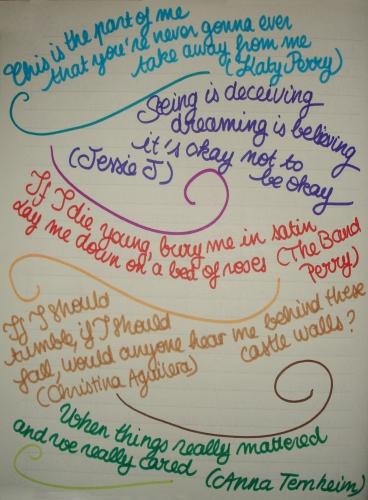 This is the part of me
that you're never gonna ever
take away from me
(Katy Perry)
Seing is deceiving
dreaming is believing
it's okay not to
be okay
(Jessie J)
If I die young, bury me in satin
lay me down on a bed of roses (The Band
Perry)
If I should
tumble, if I should
fall, would anyone hear me behind these
castle walls?
(Christina Aguilera)
When things really mattered
and we really cared (Anna Ternheim)